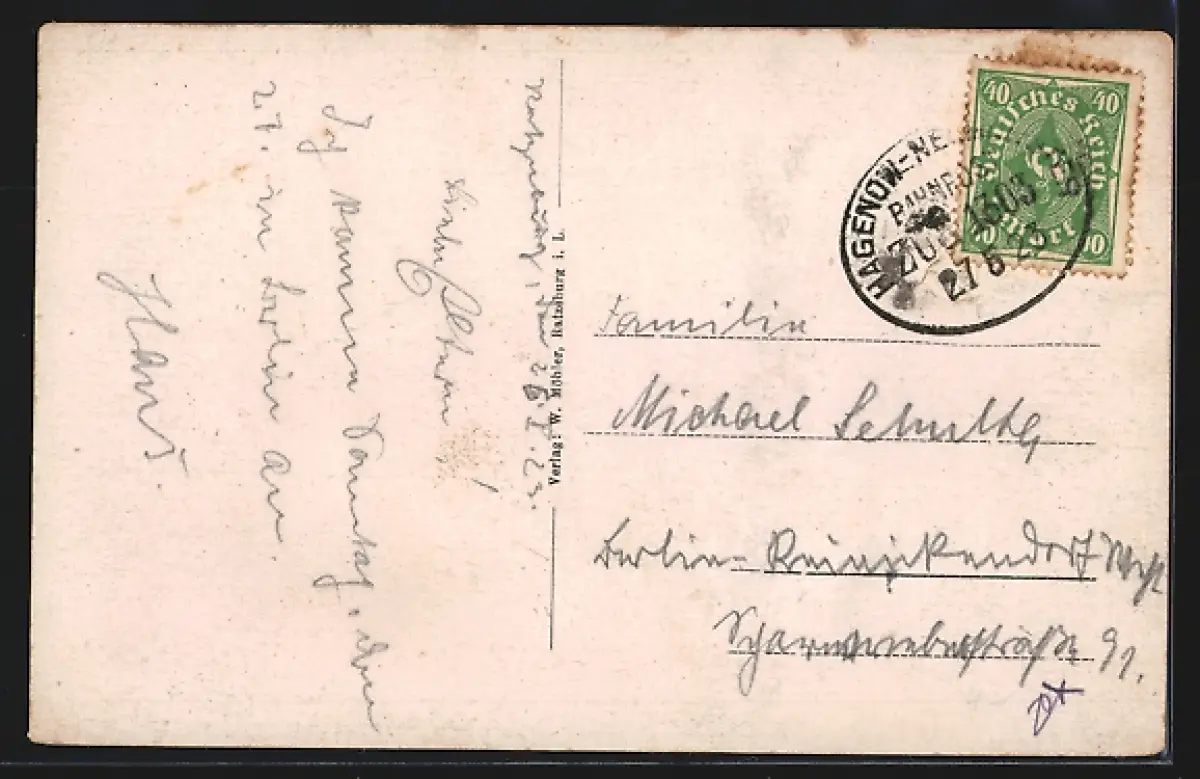 Ratzeburg, den 26.6.23.
Liebe Eltern!
Ich komme Sonntag, den
2.7. in Berlin an.
Hans.
Verlag: W. Möhler, Ratzeburg i. L.
40 40
Deutsches Reich
40 40
HAGENOW-NE
BAHNPOST
ZUG 1303
27 6 23
Familie
Michael Schultz
Berlin-Reinickendorf West
Scharnweberstraße 91.